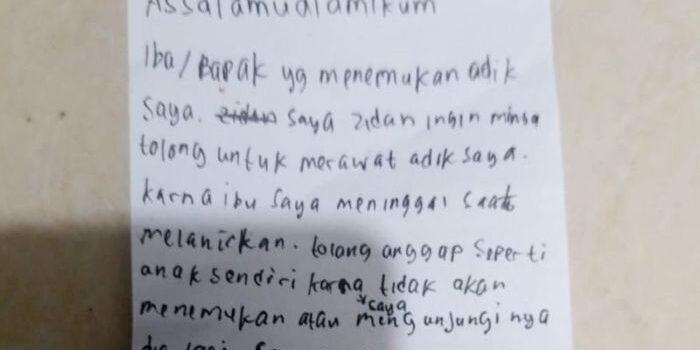 Assalamualamikum
Iba/Bapak yg menemukan adik
saya. zidan saya zidan ingin minsa
tolong untuk merawat adik saya.
karna ibu saya meninggal saat
melanirkan. tolong anggap seperti
anak sendiri karna tidak akan
menemukan atau saya mengunjungi nya